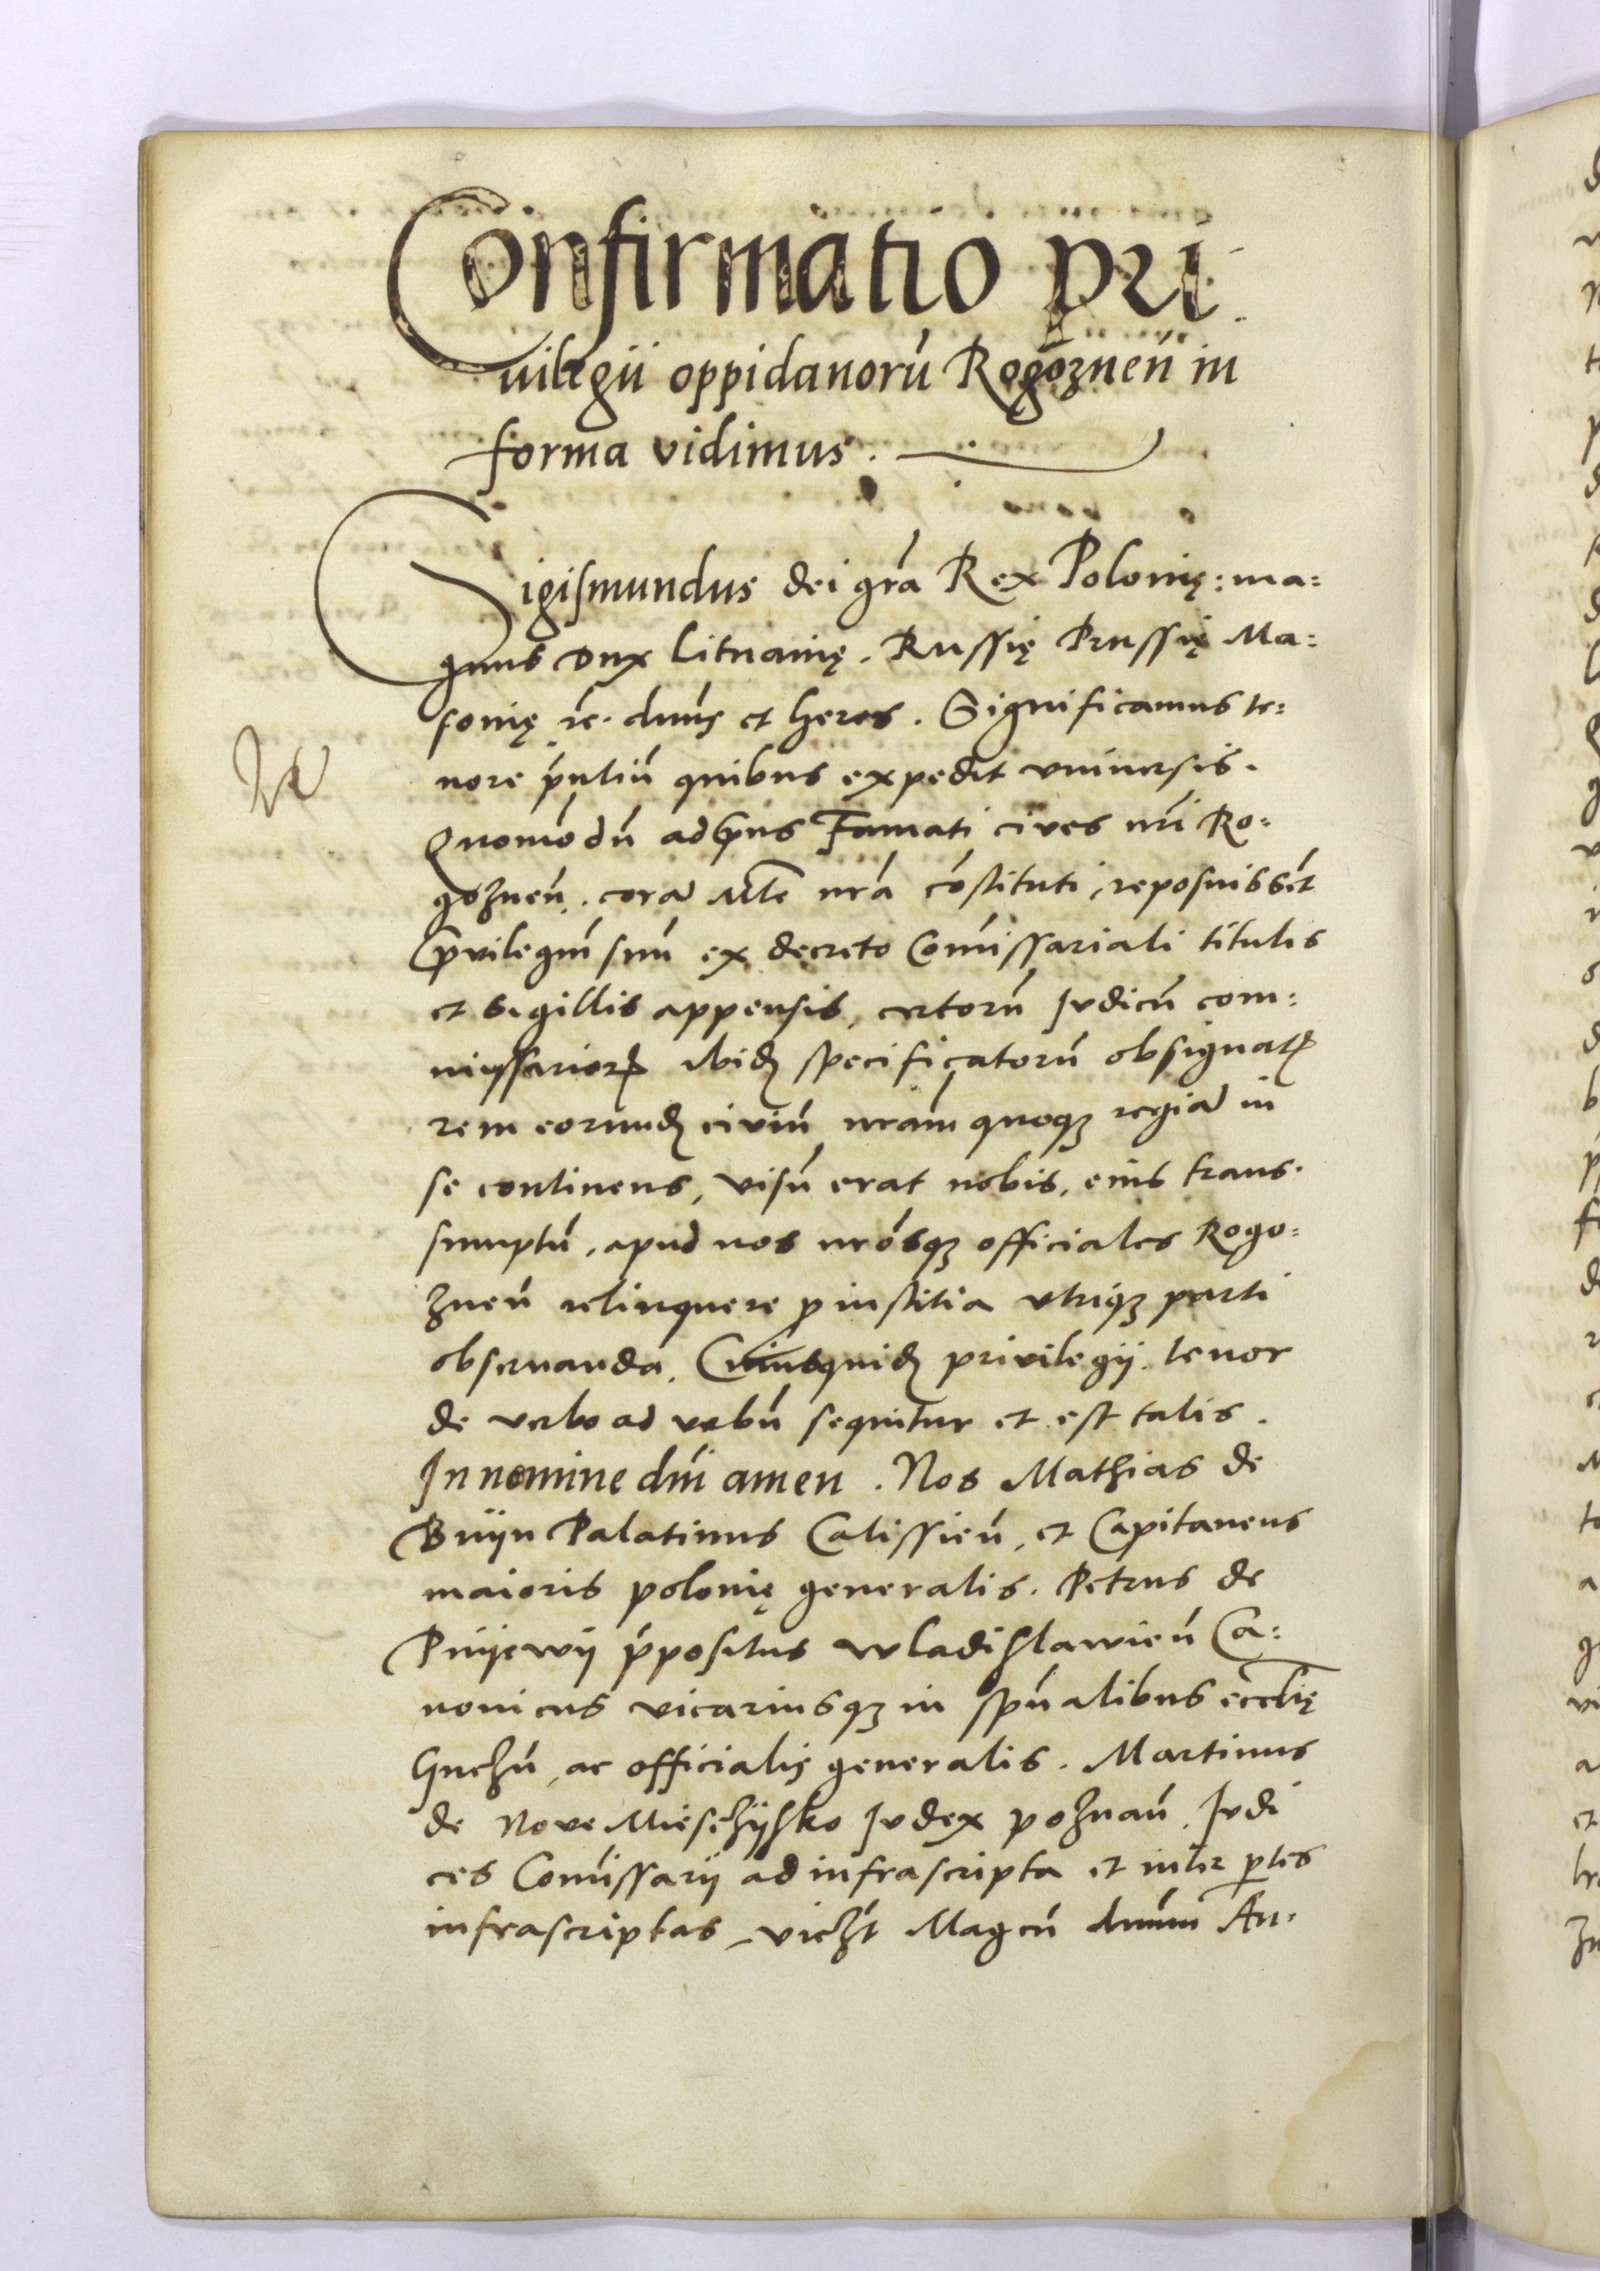 Confirmatio pri
uilegii oppidanorū Rogoznen̄ in
forma vidimus.
Sigismundus dei grā Rex Polonię: ma=
gnus Dux Lituanię. Russię Prussię Ma=
sonię ꝛc. dnūs et heres. Significamus te=
nore p̄ntiū quibus expedit vniuersis.
Quomōdū Famati ciues nr̄i Ro=
goznen̄. cora᷈ Mte nr̄a cōstituti, reposuissēt
pruilegiū suū ex decreto Com̄issariali titulis
et sigillis appensis, certorū Judicū com=
missarioꝝ ibidꝫ specificatorū obsignatꝫ
rem eorundꝫ ciuiū nr̄am quoqꝫ regia᷈ in
se continens, visū erat nobis, eius trans.
sumptū, apud nos nr̄osqꝫ officiales Rogo=
znen̄ relinquere ꝓ iustitia vtriqꝫ parti
obseruanda. Cuiusquidꝫ priuilegij tenor
de verbo ad verbū sequitur et est talis.
In nomine dn̄i amen. Nos Mathias de
Bnijn Palatinus Calissien̄, et Capitaneus
maioris polonię generalis. Petrus de
Pnijewij p̄positus Wladislawien̄ Ca=
nonicus vicariusqꝫ in spūalibus eccl̄ię
Gnezn̄, ac officialis generalis. Martinus
de Noue Mieschijsko Judex poznan̄. Judi
ces Com̄issarij ad infrascripta et inter ptes
infrascriptas, vichꝫt Magcū dnūm An.